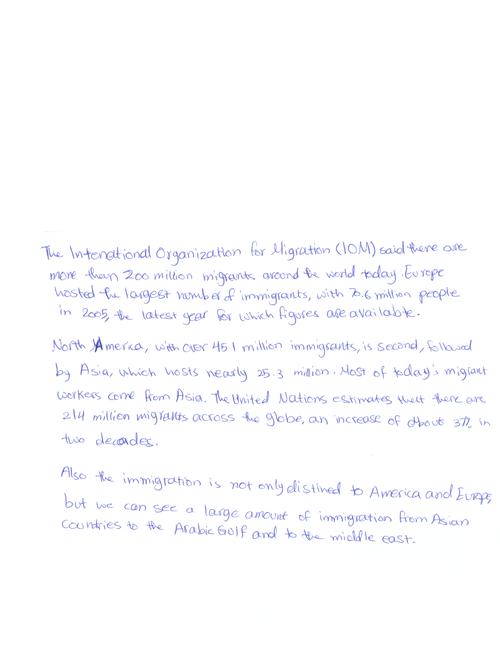 The International Organization for Migration (IOM) said there are
more than 200 million migrants around the world today. Europe
hosted the largest number of immigrants, with 70.6 million people
in 2005, the latest year for which figures are available.
North America, with over 45.1 million immigrants, is second, followed
by Asia, which hosts nearly 25.3 million. Most of today's migrant
workers come from Asia. The United Nations estimates that there are
214 million migrants across the globe, an increase of about 37% in
two decades.
Also the immigration is not only distined to America and Europe,
but we can see a large amount of immigration from Asian
Countries to the Arabic Golf and to the middle east.